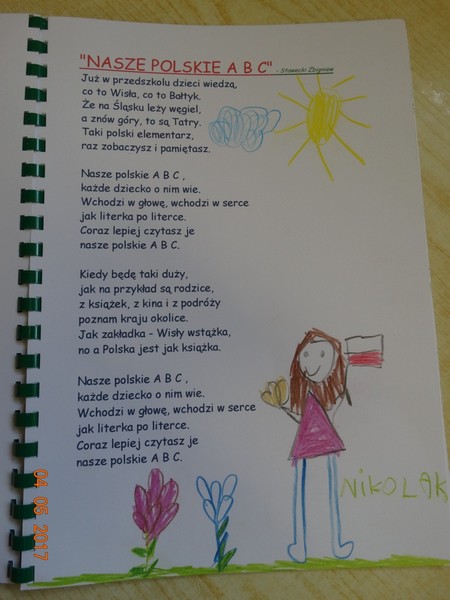 "NASZE POLSKIE A B C" - Stawecki Zbigniew
Już w przedszkolu dzieci wiedzą,
co to Wisła, co to Bałtyk.
Że na Śląsku leży węgiel,
a znów góry, to są Tatry.
Taki polski elementarz,
raz zobaczysz i pamiętasz.
Nasze polskie A B C ,
każde dziecko o nim wie.
Wchodzi w głowę, wchodzi w serce
jak literka po literce.
Coraz lepiej czytasz je
nasze polskie A B C.
Kiedy będę taki duży,
jak na przykład są rodzice,
z książek, z kina i z podróży
poznam kraju okolice.
Jak zakładka - Wisły wstążka,
no a Polska jest jak książka.
Nasze polskie A B C ,
każde dziecko o nim wie.
Wchodzi w głowę, wchodzi w serce
jak literka po literce.
Coraz lepiej czytasz je
nasze polskie A B C.
NIKOLAK
04 05 2017